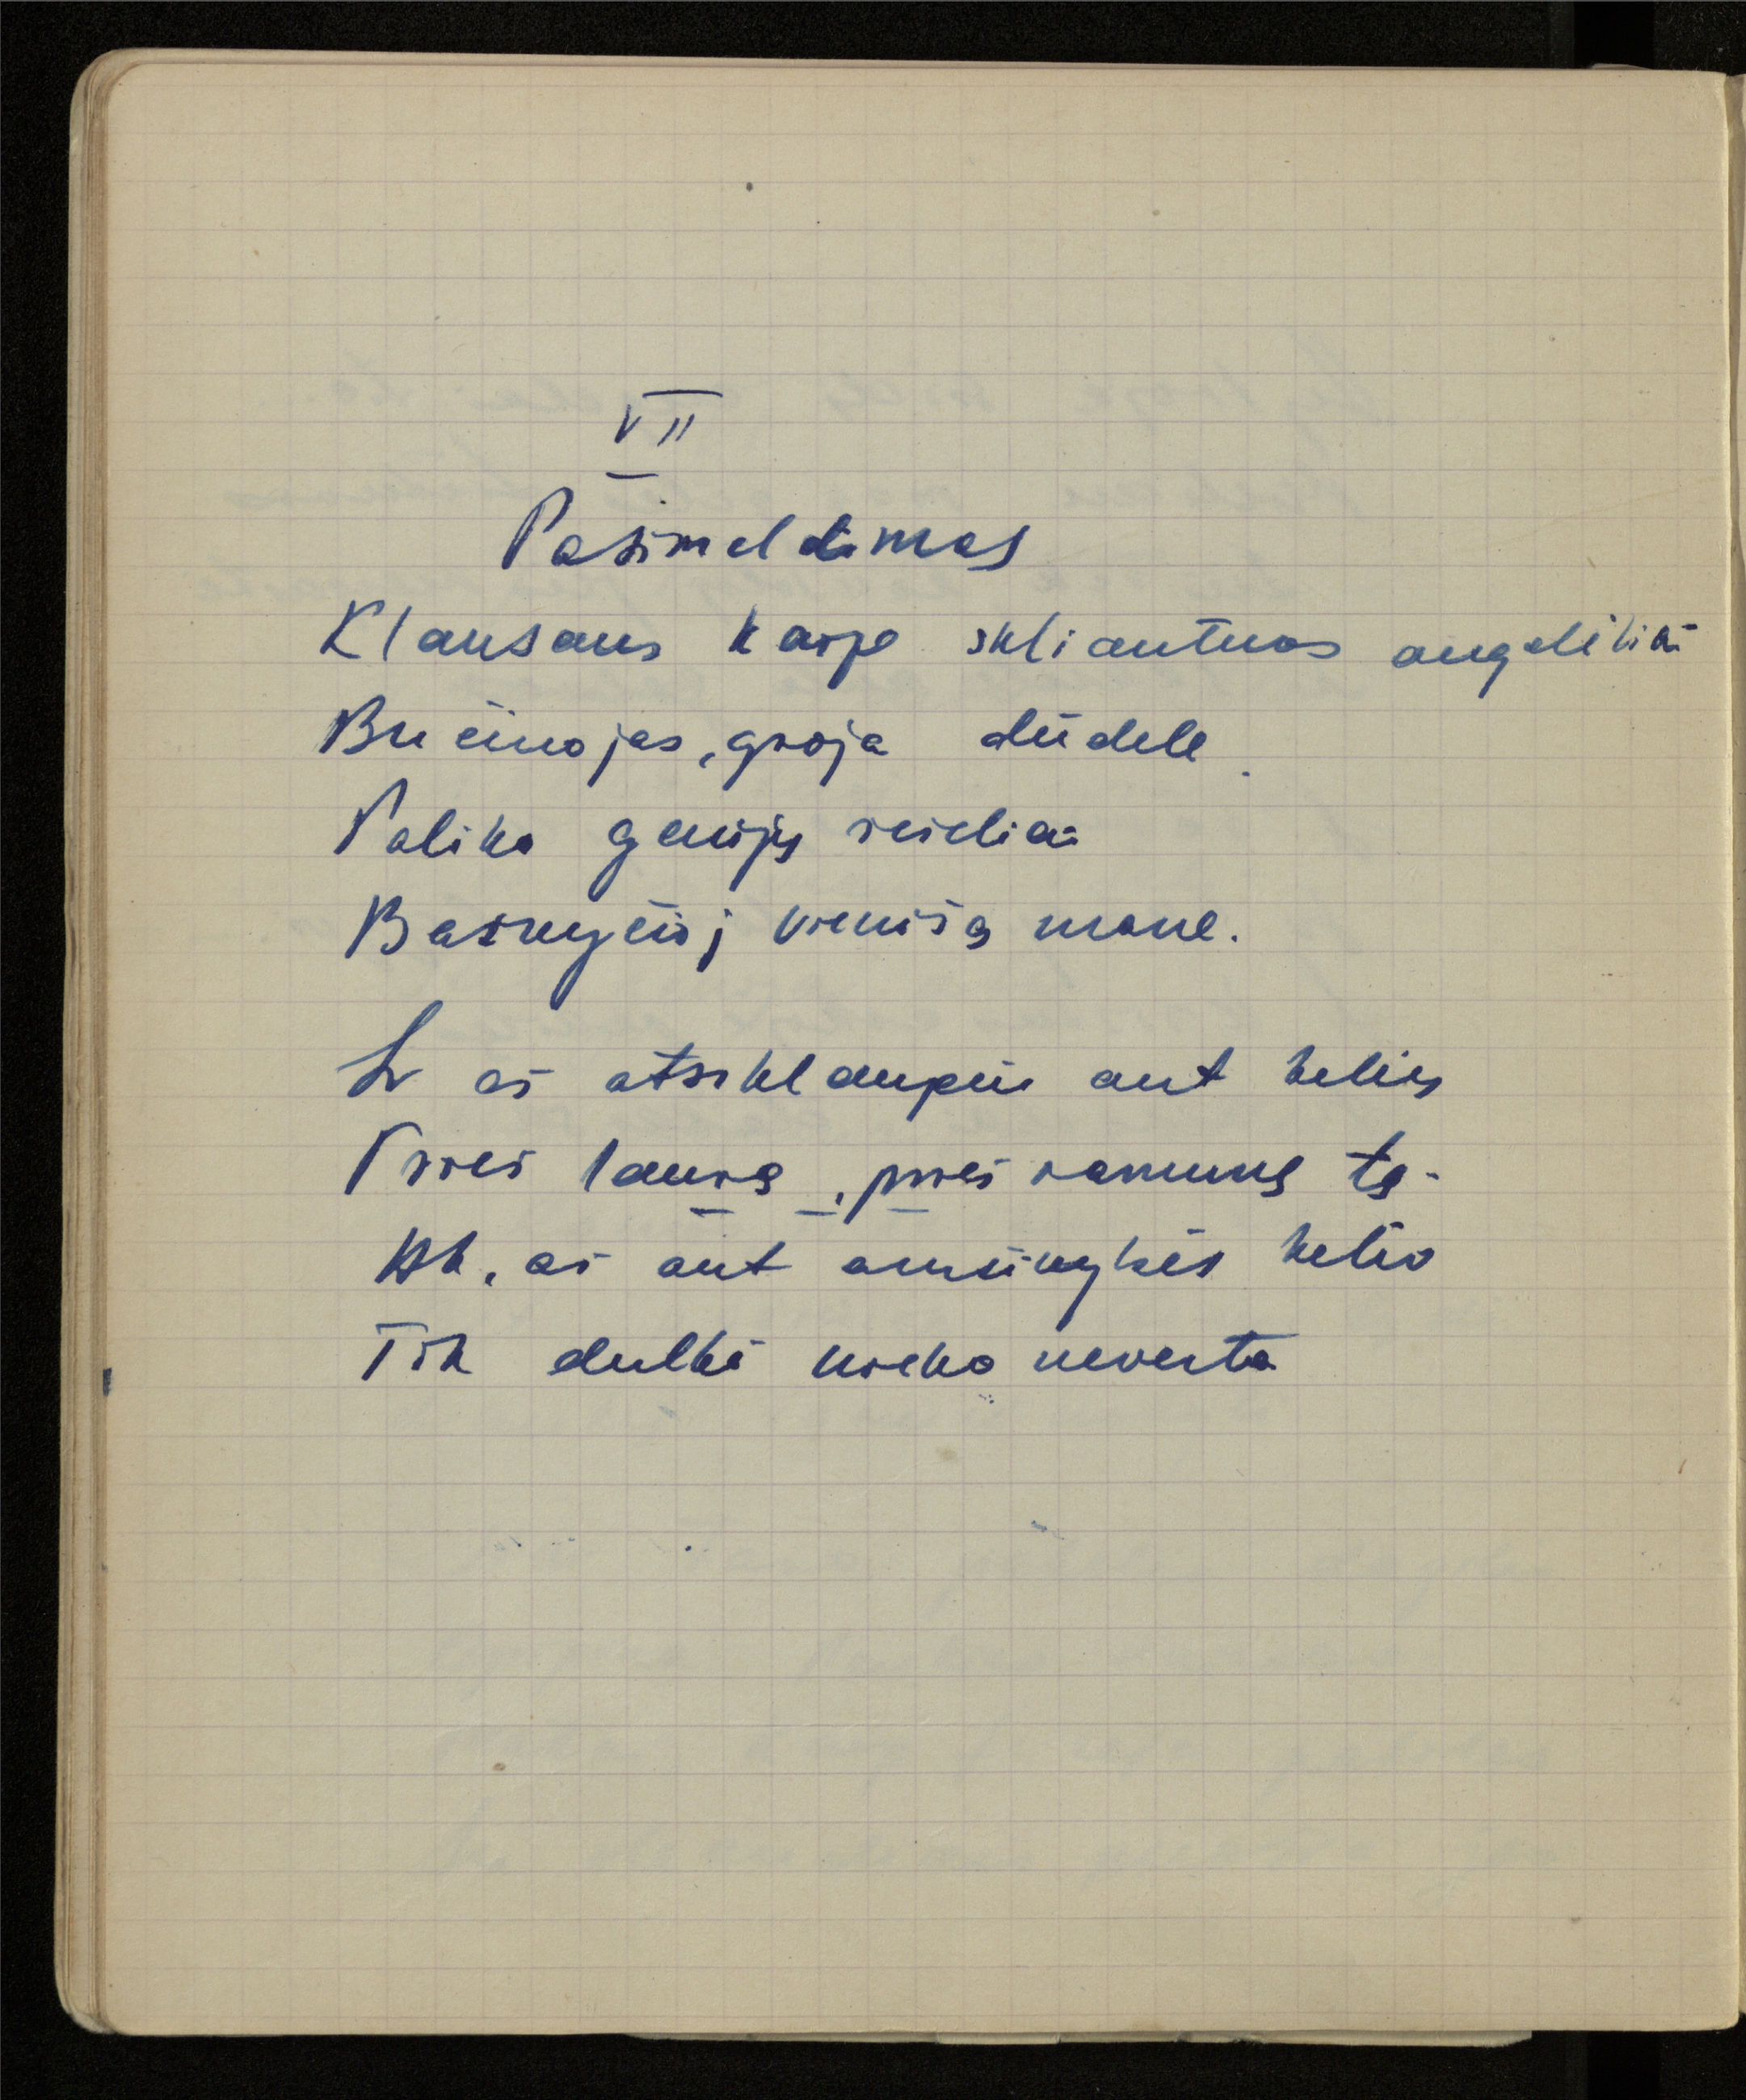 VII
Pasimeldimas
Klausaus kaip skliautuos angeliukai
Bučiuojas, groja dūdele.
Paliko genijų veidai
Bažnyčioj vienišą mane.
Ir aš atsiklaupiu ant kelių
Prieš taurę, prieš ramumą tą.
Ak, aš ant amžinybės kelio
Tik dulkė nieko neverta